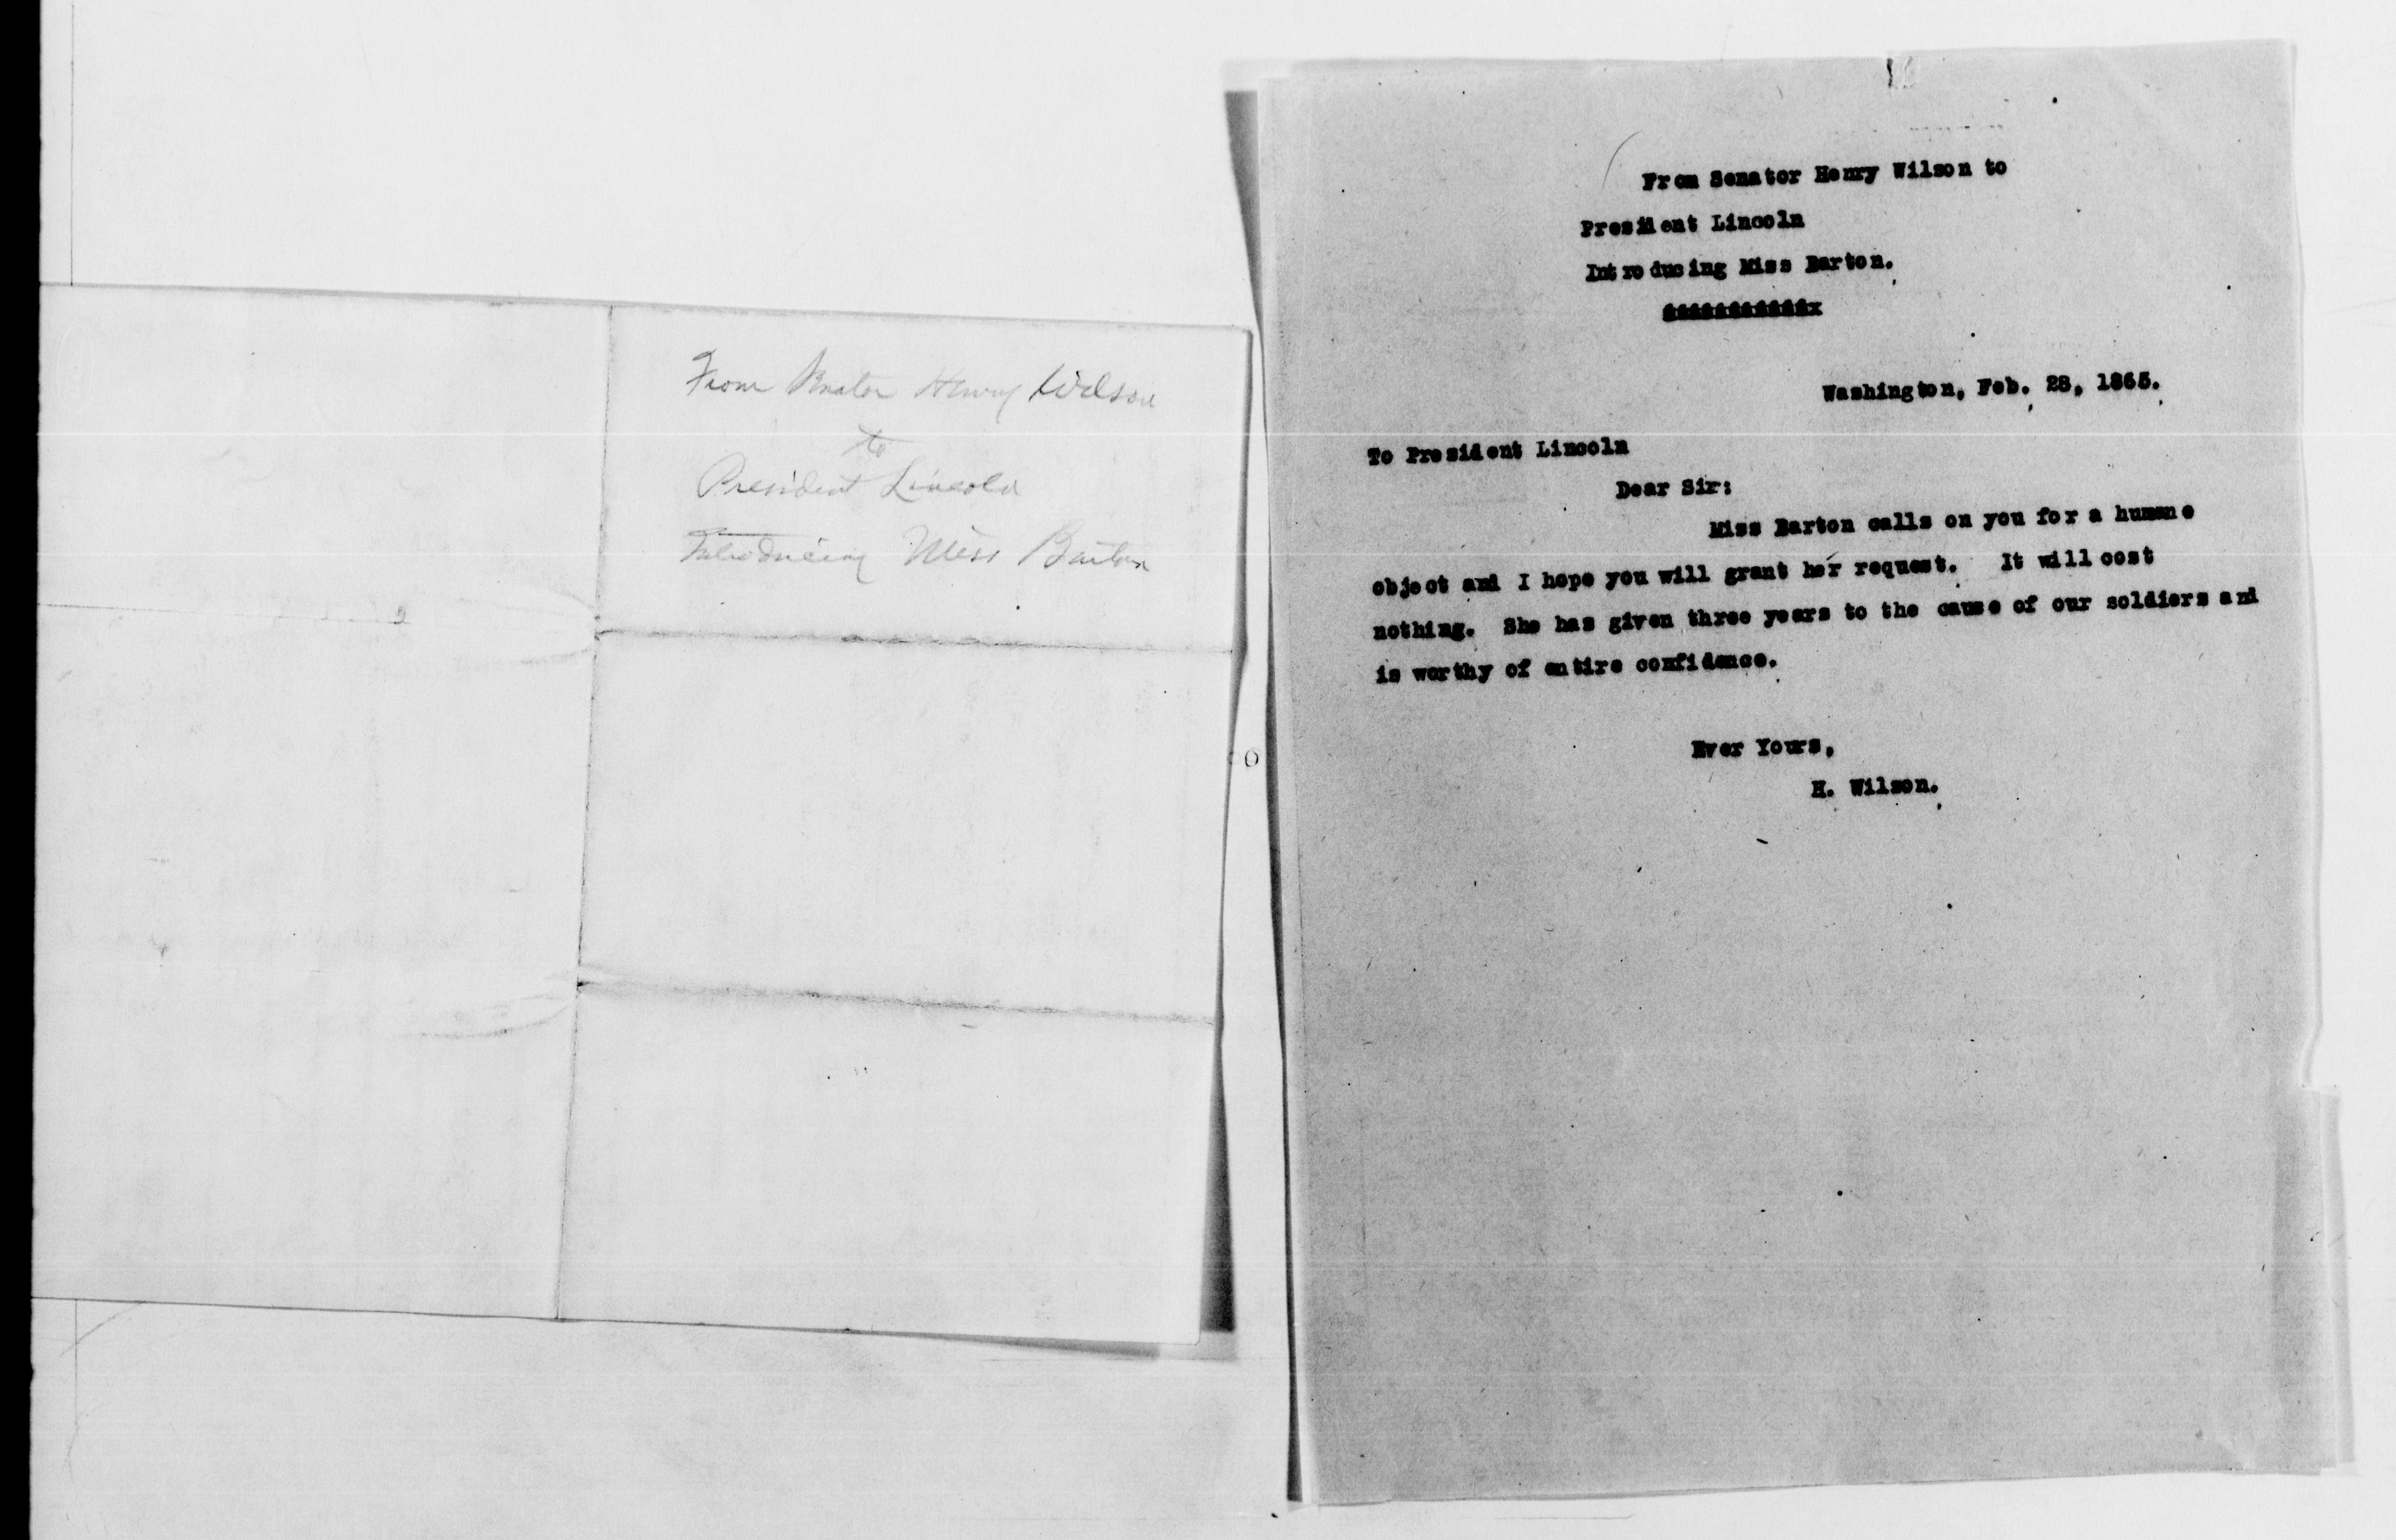 From Senator Henry Wilson
to
President Lincoln
Introducing Miss Barton
From Senator Henry Wilson to
President Lincoln
Introducing Miss Barton.
Washington, Feb. 28, 1865.
To President Lincoln
Dear Sir:
Miss Barton calls on you for a humane
object and I hope you will grant her request. It will cost
nothing. She has given three years to the cause of our soldiers and
is worthy of entire confidence.
Ever Yours,
H. Wilson.